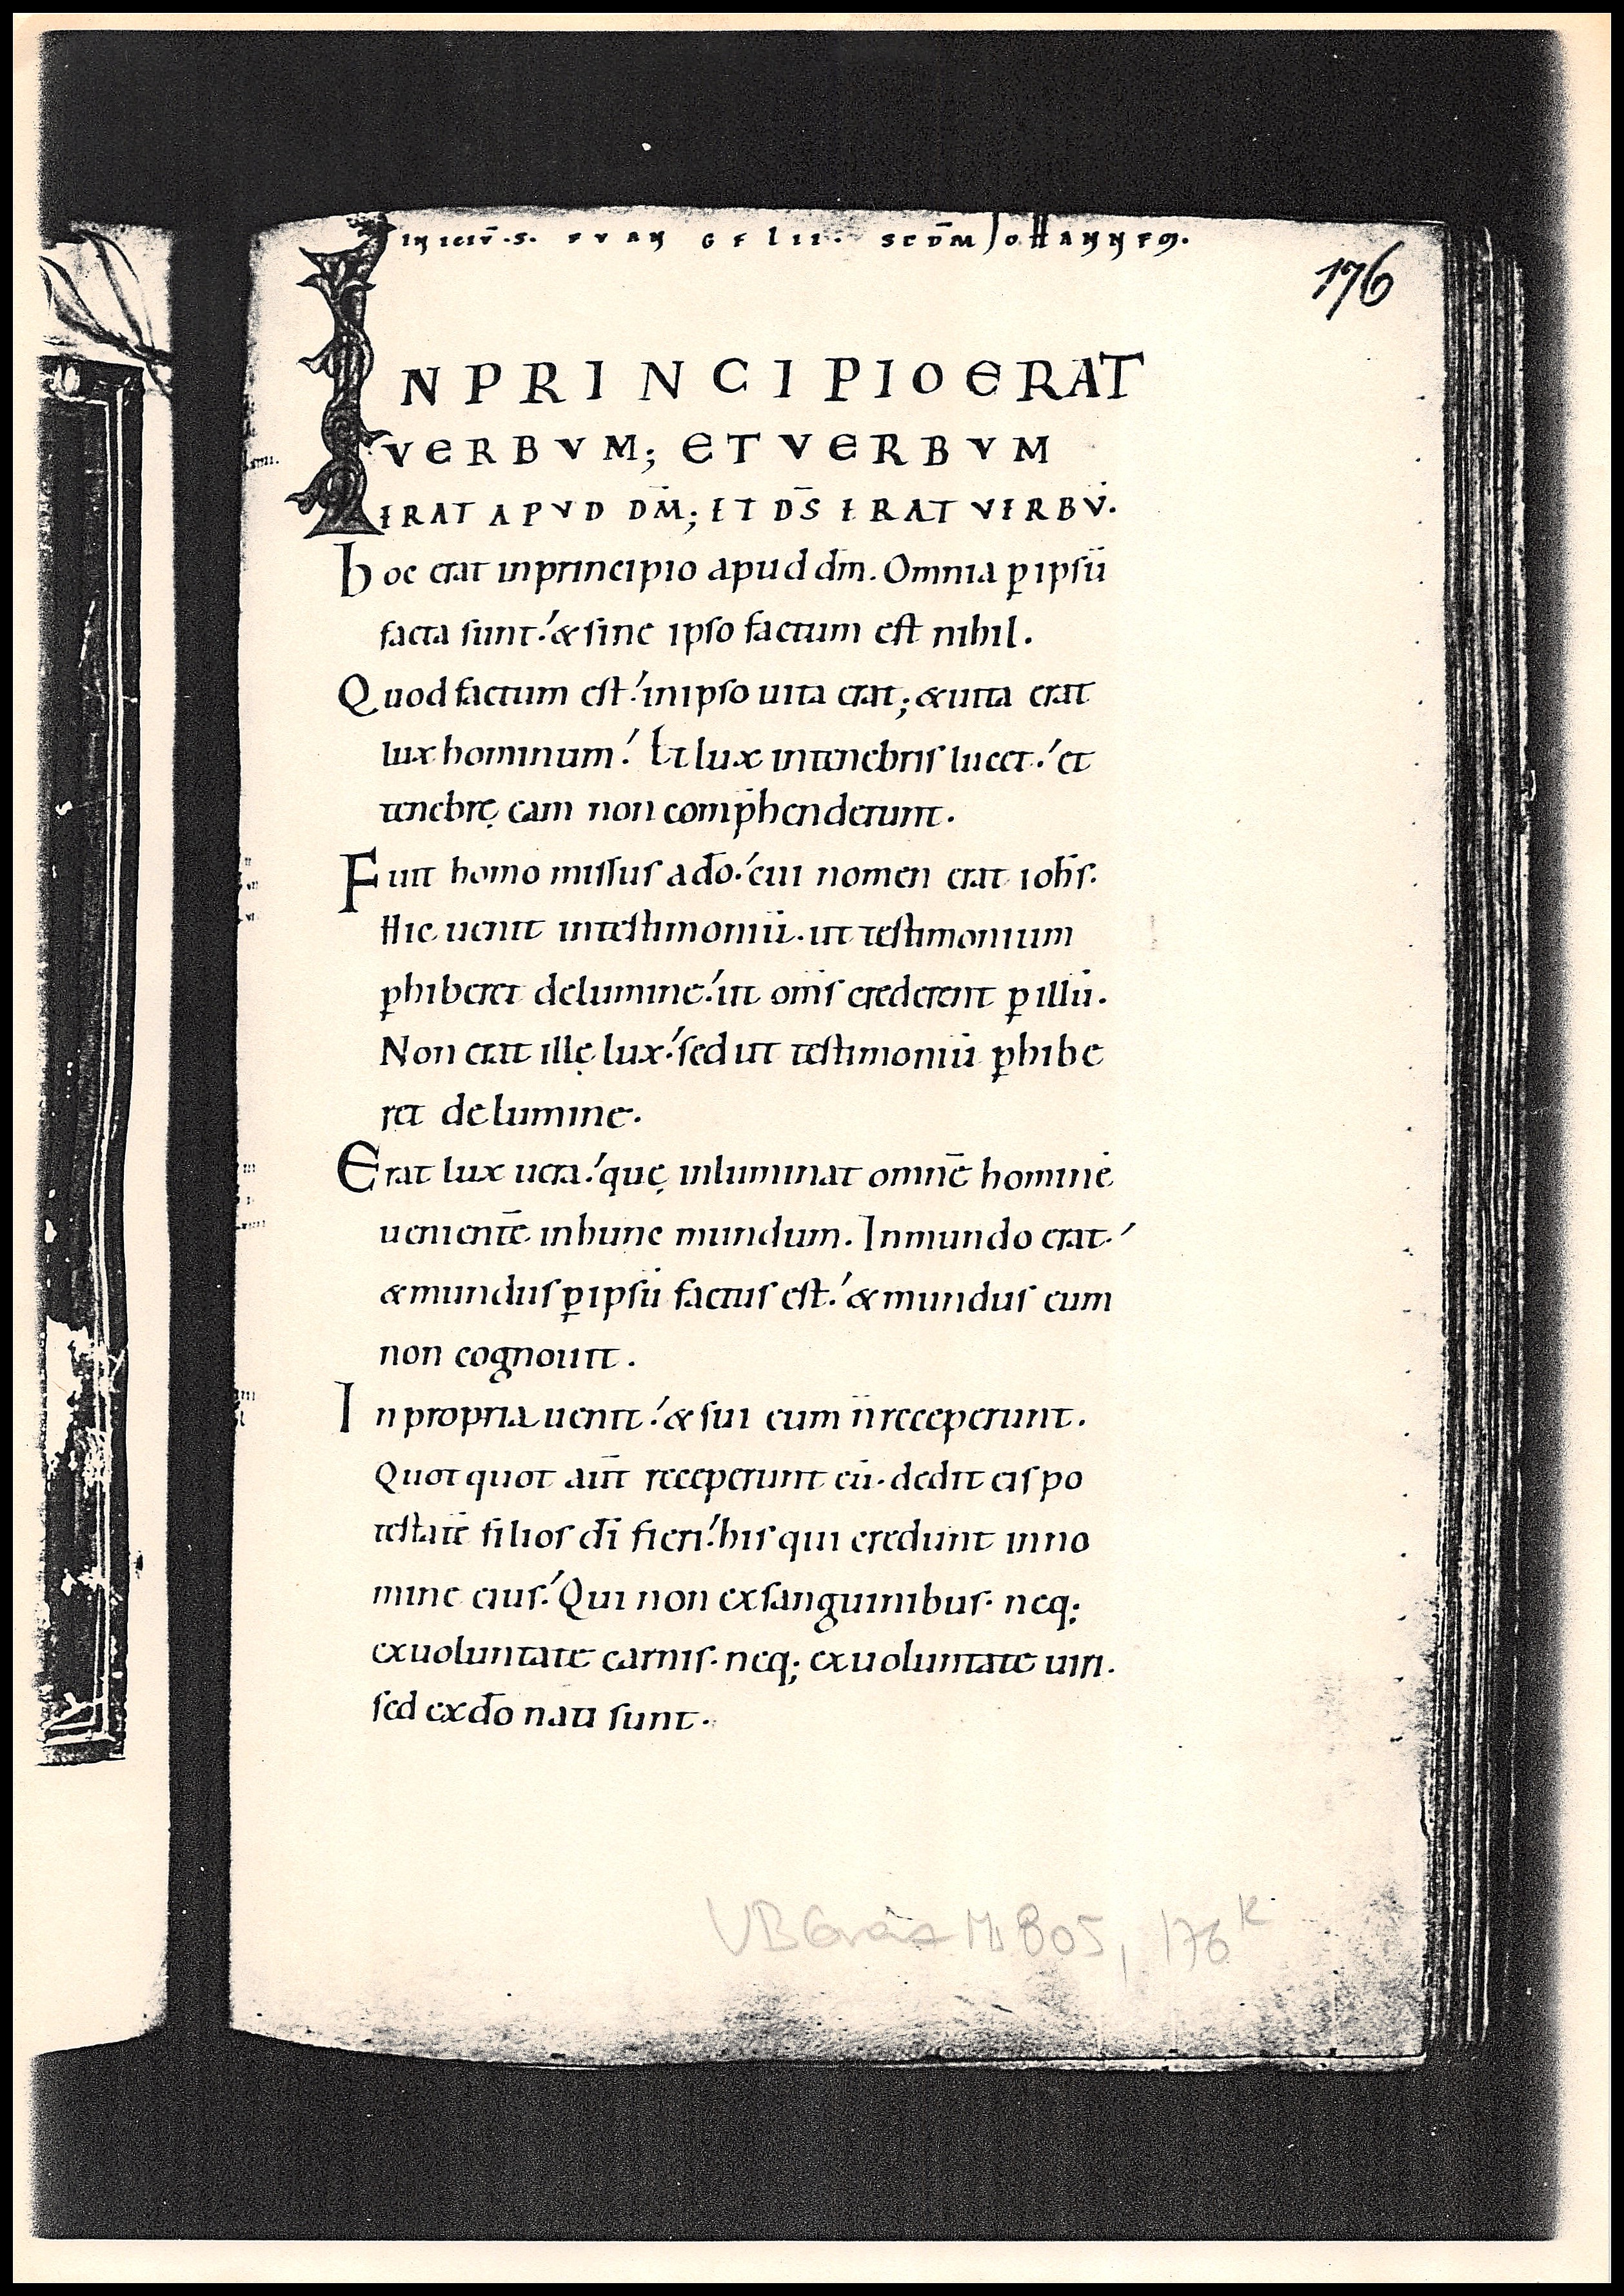 INICIŪ·S· EVANGELII· SCDM̄ JOHANNEM·
176
IN PRINCIPIO ERAT
VERBVM; ET VERBVM
ERAT APVD DM̄; ET DS̄ ERAT VERBV̄.
hoc erat inprincipio apud dm̄. Omnia ꝑ ipsū
facta sunt. & sine ipso factum est nihil.
Quod factum est. inipso uita erat; & uita erat
lux hominum. Et lux intenebris lucet. et
tenebrę eam non comp̄henderunt.
Fuit homo missus ado̅. cui nomen erat ioh̅s.
Hic uenit intestimoniū. ut testimonium
ꝑhiberet delumine. ut om̅s crederent ꝑ illū.
Non erat illę lux. sed ut testimoniū ꝑhibe
ret delumine.
Erat lux uera. quę inluminat omnē hominē
uenientē inhunc mundum. Inmundo erat.
& mundus ꝑ ipsū factus est. & mundus eum
non cognouit.
In propria uenit. & sui eum n̄ receperunt.
Quotquot aut̄ receperunt eū. dedit eis po
testatē filios dī fieri. his qui credunt inno
mine eius. Qui non exsanguinibus. neq;
exuoluntate carnis. neq; exuoluntate uiri.
sed exdō nati sunt.
UB Graz Ms 805, 176r